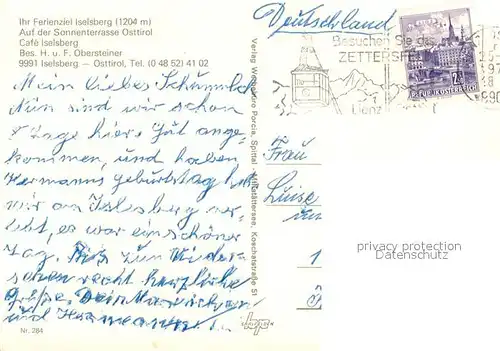 Ihr Ferienziel Iselsberg (1204 m)
Auf der Sonnenterrasse Osttirol
Café Iselsberg
Bes. H. u. F. Obersteiner
9991 Iselsberg — Osttirol, Tel. (0 48 52) 41 02
Mein liebes
Nun sind wir schon
8 Tage hier. Gut ange-
kommen, und haben
Hermanns Geburtstag
wir am Iselsberg ver-
lebt, es war ein schöner
Tag. Bis zum Wieder-
sehen recht herzliche
Grüße Dein
und Hermann
Nr. 284
Verlag Porcia, Spittal Millstättersee, Koschatstraße 51
Deutschland
Besuchen Sie das
ZETTERSFELD
Lienz
2 S
REPUBLIK ÖSTERREICH
Frau
Luise
privacy protection
Datenschutz